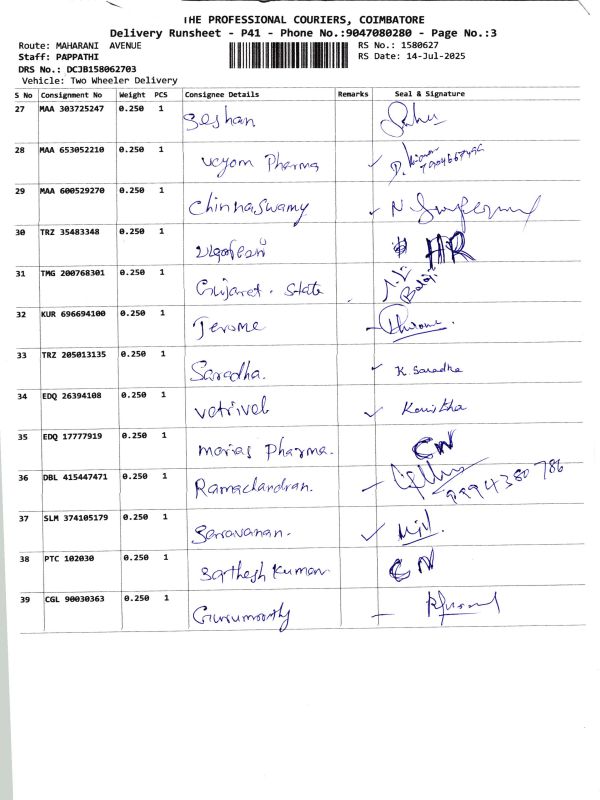 THE PROFESSIONAL COURIERS, COIMBATORE
Delivery Runsheet - P41 - Phone No.:9047080280 - Page No.:3
Route: MAHARANI AVENUE RS No.: 1580627
Staff: PAPPATHI RS Date: 14-Jul-2025
DRS No.: DCJB158062703
Vehicle: Two Wheeler Delivery
S No Consignment No Weight PCS Consignee Details Remarks Seal & Signature
27 MAA 303725247 0.250 1 Seshan
28 MAA 653052210 0.250 1 vcyom Pharma
29 MAA 600529270 0.250 1 Chinnaswamy
30 TRZ 35483348 0.250 1 HR
31 TMG 200768301 0.250 1 Gujaret. State Balaji
32 KUR 696694100 0.250 1 Jerome
33 TRZ 205013135 0.250 1 Saradha. K. Saradha
34 EDQ 26394108 0.250 1 vetrivel Kanistha
35 EDQ 17777919 0.250 1 morias Pharma. CN
36 DBL 415447471 0.250 1 Ramachandran. 9994380786
37 SLM 374105179 0.250 1 Saravanan.
38 PTC 102030 0.250 1 Sathesh Kumar CN
39 CGL 90030363 0.250 1 Gurumoorthy